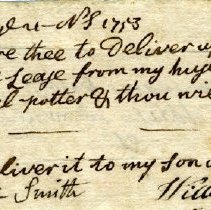 1753
re thee to Deliver u
Lease from my hus
l potter & thou
liver it to my son
Smith Will